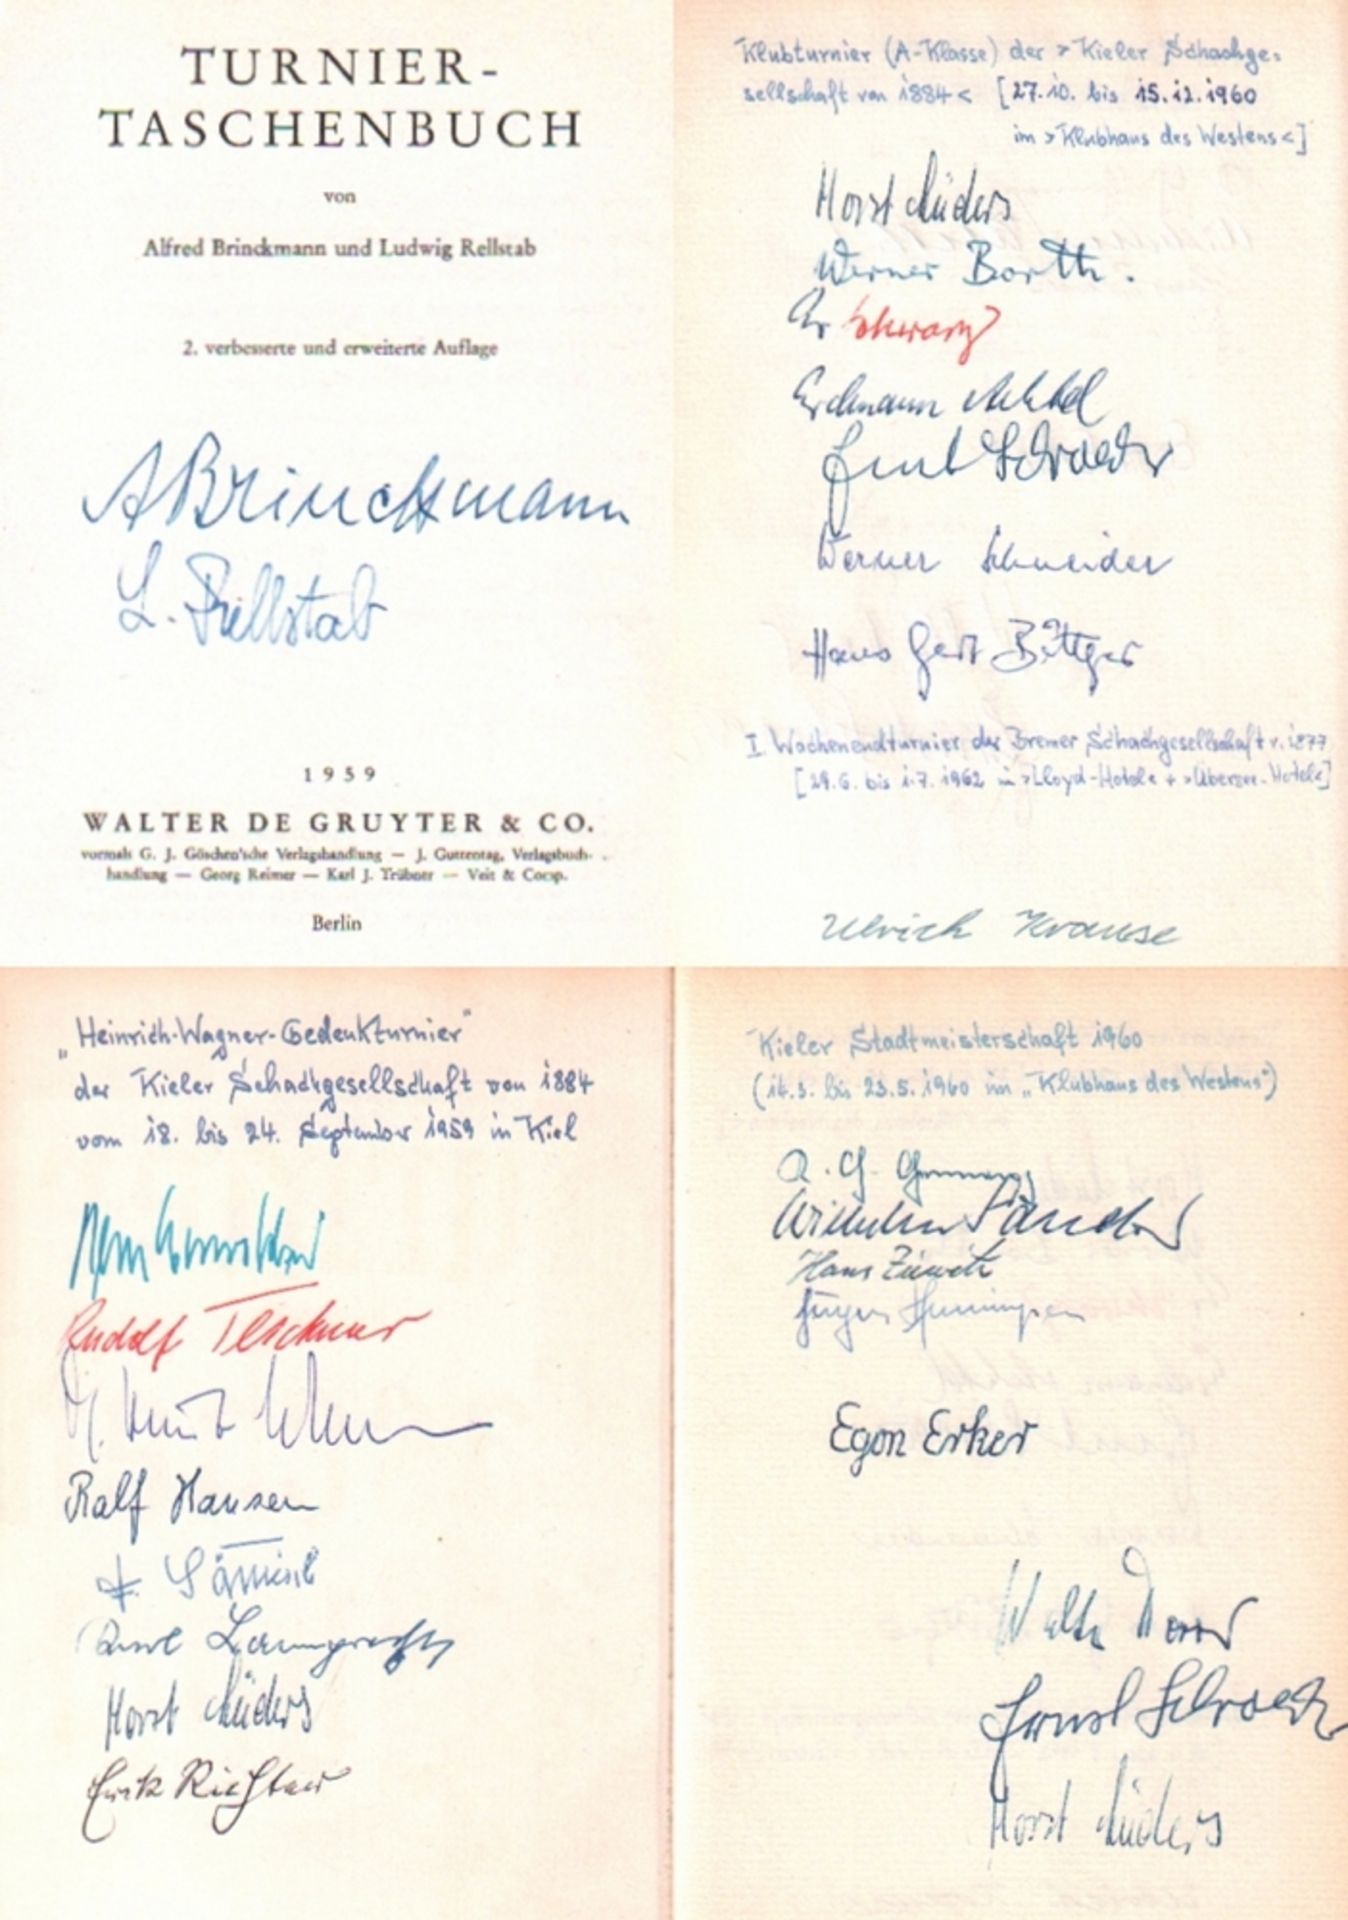 TURNIER-
TASCHENBUCH
von
Alfred Brinckmann und Ludwig Rellstab
2. verbesserte und erweiterte Auflage
A Brinckmann
L. Rellstab
1959
WALTER DE GRUYTER & CO.
vormals G. J. Göschen'sche Verlagshandlung — J. Guttentag, Verlagsbuch-
handlung — Georg Reimer — Karl J. Trübner — Veit & Comp.
Berlin
Klubturnier (A-Klasse) der >Kieler Schachge-
sellschaft von 1884< [27.10. bis 15.12.1960
im >Klubhaus des Westens<]
Horst Lüders
Werner Barth.
Schwarz
Erdmann
Ernst Schroeder
Werner Schneider
Hans Gert Böttger
I. Wochenendturnier der Bremer Schachgesellschaft v. 1877
[29.6. bis 1.7. 1962 in >Lloyd-Hotel< + >Übersee-Hotel<]
Ulrich Krause
"Heinrich-Wagner-Gedenkturnier"
der Kieler Schachgesellschaft von 1884
vom 18. bis 24. September 1959 in Kiel
Rudolf Teschner
Ralf Hansen
F. Sämisch
Karl Lamprecht
Horst Lüders
Erik Richter
Kieler Stadtmeisterschaft 1960
(14.3. bis 23.5.1960 im "Klubhaus des Westens")
Wilhelm Sander
Hans
Jürgen Henningsen
Egon Erker
Ernst Schroeder
Horst Lüders